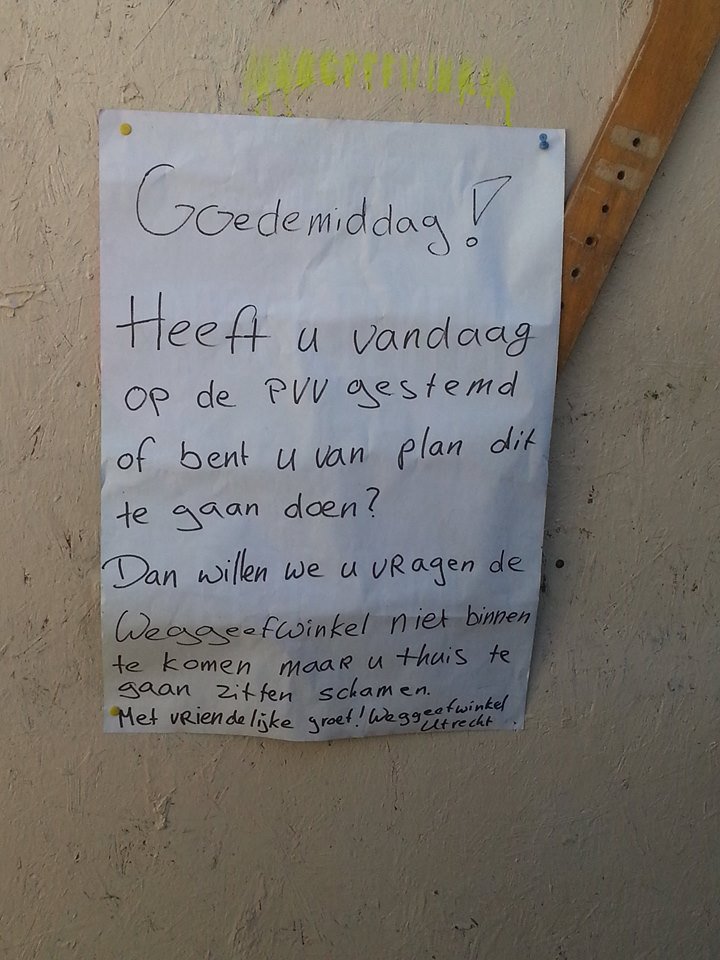 Goedemiddag!
Heeft u vandaag
op de PVV gestemd
of bent u van plan dit
te gaan doen?
Dan willen we u vragen de
Weggeefwinkel niet binnen
te komen maar u thuis te
gaan zitten schamen.
Met vriendelijke groet! Weggeefwinkel
Utrecht.